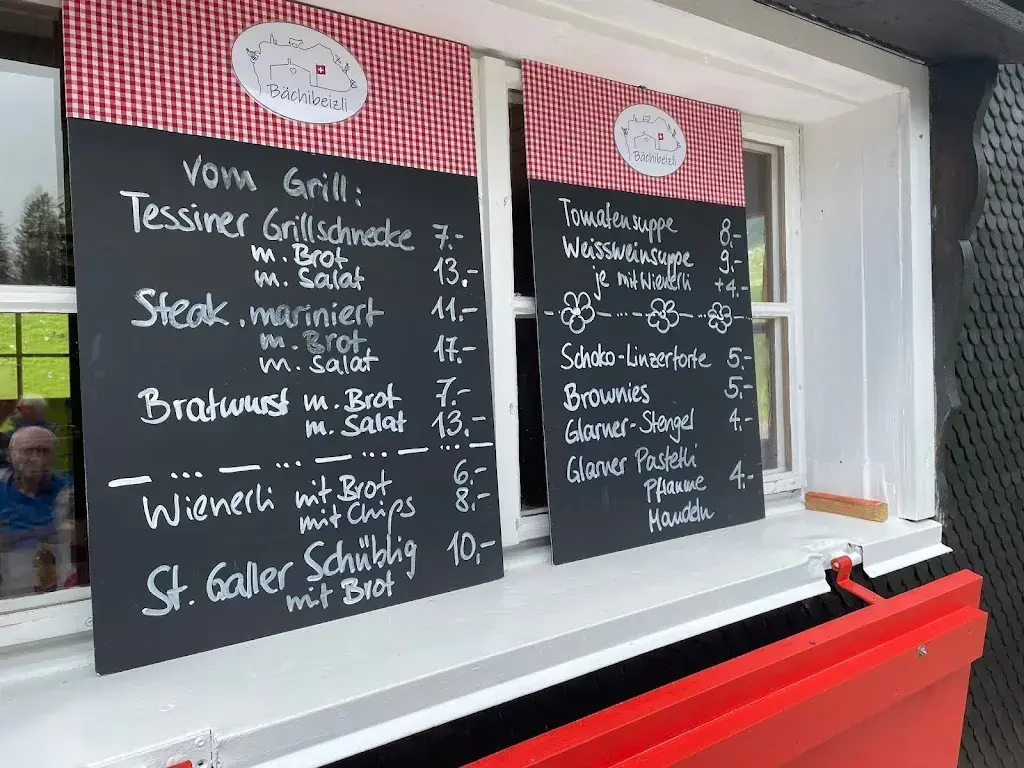 Bächibeizli
Vom Grill:
Tessiner Grillschnecke
m. Brot 7.-
m. Salat 13.-
Steak, mariniert 11.-
m. Brot
m. Salat 17.-
Bratwurst m. Brot 7.-
m. Salat 13.-
Wienerli mit Brot 6.-
mit Chips 8.-
St. Galler Schüblig 10.-
mit Brot
Bächibeizli
Tomatensuppe 8.-
Weissweinsuppe 9.-
je mit Wienerli +4.-
Schoko-Linzertorte 5.-
Brownies 5.-
Glarner-Stengel 4.-
Glarner Pastetli
Pflaume 4.-
Mandeln